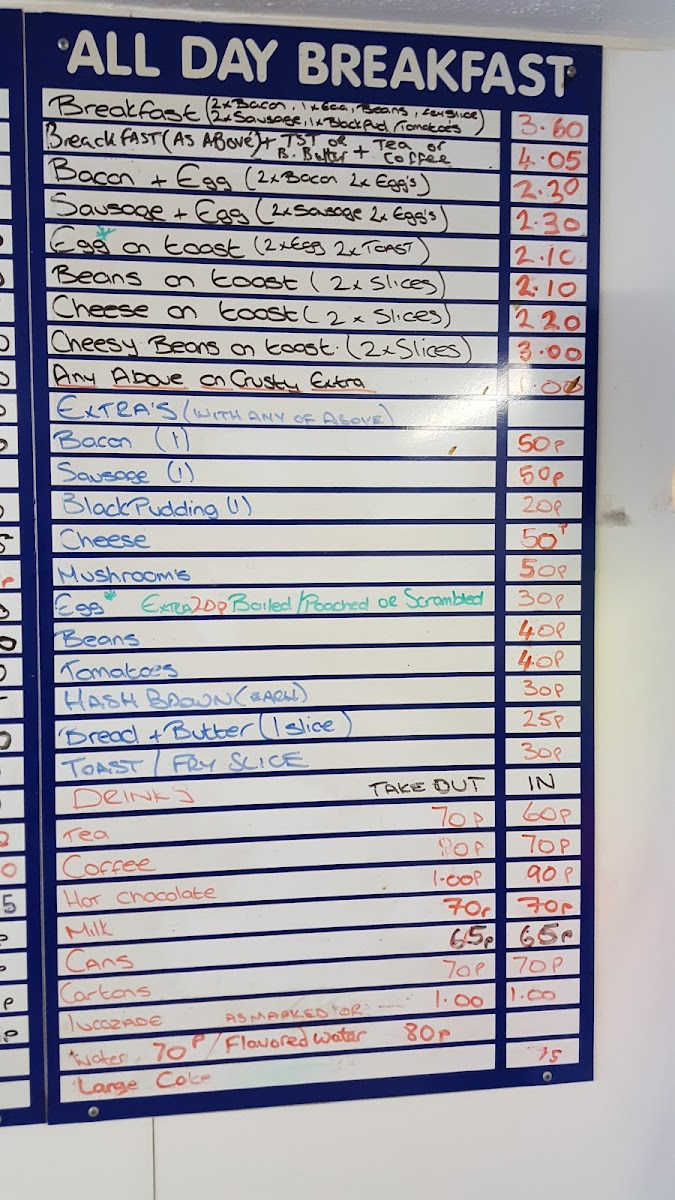 ALL DAY BREAKFAST
Breakfast (2xBacon, 1xEgg, Beans, fry slice) 3.60
2xSausage, 1xBlack Pud, Tomatoes
BreackFAST (AS ABove) + TST or B. Butter + Tea or Coffee 4.05
Bacon + Egg (2xBacon 2xEgg's) 2.30
Sausage + Egg (2xSausage 2xEgg's) 2.30
Egg* on toast (2xEgg 2xTOAST) 2.10
Beans on toast (2xSlices) 2.10
Cheese on toast (2xSlices) 2 20
Cheesy Beans on toast. (2xSlices) 3.00
Any Above on Crusty Extra 1.00
EXTRA'S (WITH ANY OF ABOVE)
Bacon (1) 50p
Sausage (1) 50p
Black Pudding (1) 20p
Cheese 50p
Mushroom's 50p
Egg* Extra 20p Boiled/Poached or Scrambled 30p
Beans 40p
Tomatoes 40p
HASH BROWN (EACH) 30p
Bread + Butter (1 slice) 25p
TOAST / FRY SLICE 30p
DRINKS TAKE OUT IN
Tea 70p 60p
Coffee 80p 70p
Hot chocolate 1.00p 90p
Milk 70p 70p
CANS 65p 65p
Cartons 70p 70p
lucozade AS MARKED OR 1.00 1.00
water 70p / Flavored water 80p
Large Coke